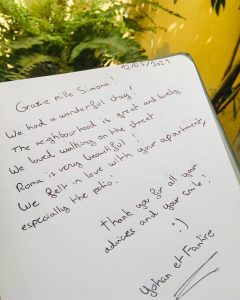 12/07/2021
Grazie mille Simona!
We had a wonderful stay!
The neighbourhood is great and lively
We loved walking on the street.
Roma is very beautiful!
We felt in love with your apartment,
especially the patio.
Thank you for all your
advices and your smile!
:)
Yohan et